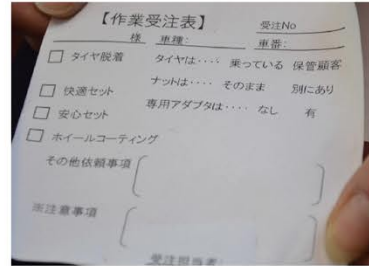 【作業受注表】 受注No
様 車種: 車番:
□ タイヤ脱着 タイヤは‥‥ 乗っている 保管顧客
ナットは‥‥ そのまま 別にあり
□ 快適セット
専用アダプタは‥‥ なし 有
□ 安心セット
□ ホイールコーティング
その他依頼事項
※注意事項
受注担当者: